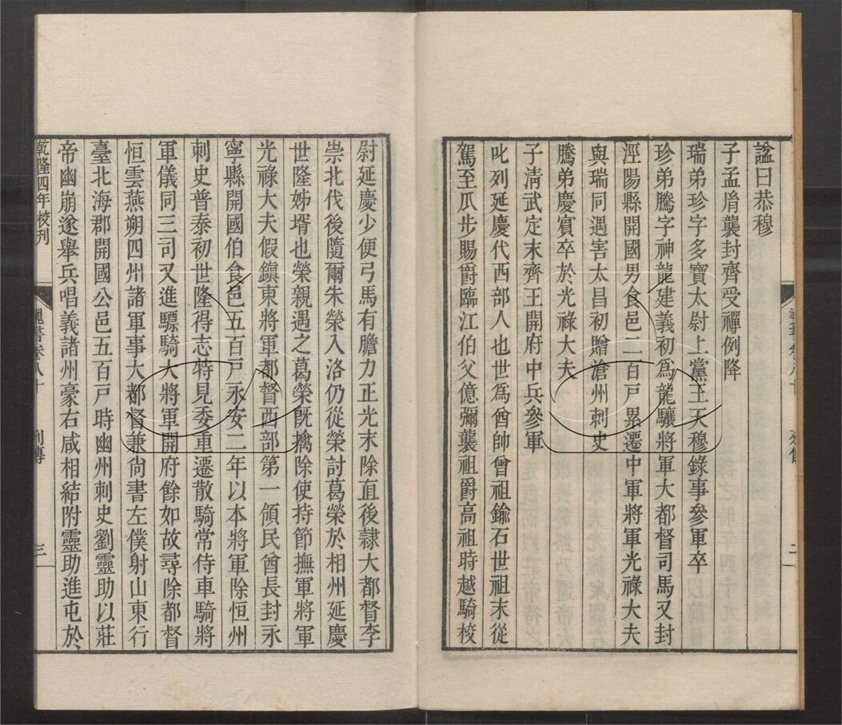 諡曰恭穆
子孟脣襲封齊受禪例降
瑞弟珍字多寶太尉上黨王天穆錄事參軍卒
珍弟騰字神龍建義初爲龍驤將軍大都督司馬又封
涇陽縣開國男食邑二百戸累遷中軍將軍光祿大夫
與瑞同遇害太昌初贈滄州刺史
騰弟慶賓卒於光祿大夫
子清武定末齊王開府中兵參軍
叱列延慶代西部人也世爲酋帥曾祖鍮石世祖末從
駕至瓜步賜爵臨江伯父億彌襲祖爵高祖時越騎校
二
尉延慶少便弓馬有膽力正光末除直後隷大都督李
崇北伐後隨爾朱榮入洛仍從榮討葛榮於相州延慶
世隆姊壻也榮親遇之葛榮旣擒除使持節撫軍將軍
光祿大夫假鎭東將軍都督西部第一領民酋長封永
寧縣開國伯食邑五百戸永安二年以本將軍除恒州
刺史普泰初世隆得志特見委重遷散騎常侍車騎將
軍儀同三司又進驃騎大將軍開府餘如故尋除都督
恒雲燕朔四州諸軍事大都督兼尙書左僕射山東行
臺北海郡開國公邑五百戸時幽州刺史劉靈助以莊
帝幽崩遂舉兵唱義諸州豪右咸相結附靈助進屯於
乾隆四年校刊
魏書卷八十
列傳
三